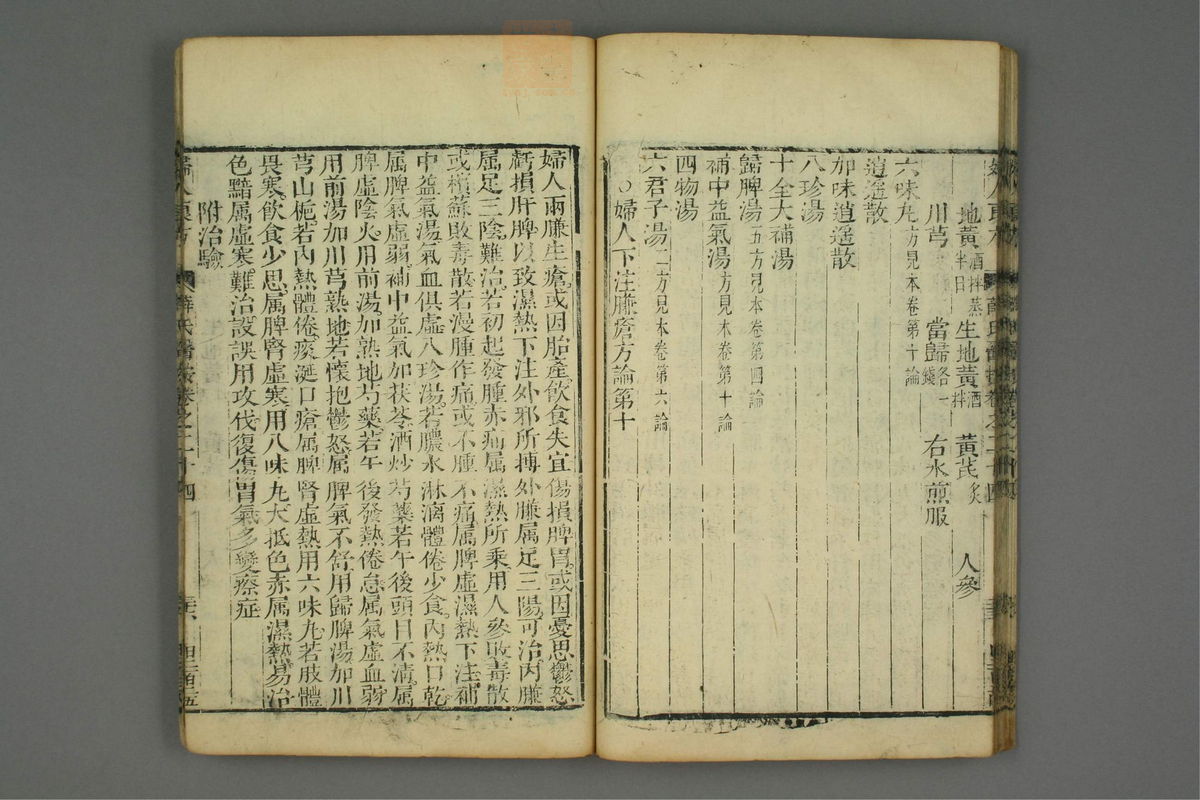 地黃酒拌蒸半日　生地黃酒拌　黃芪炙　人參
川芎　當歸各一錢　右水煎服
六味丸方見本卷第十論
逍遥散
加味逍遥散
八珍湯
十全大補湯
歸脾湯五方見本卷第四論
補中益氣湯方見本卷第十論
四物湯
六君子湯二方見本卷第六論
○婦人下注臁瘡方論第十
婦人兩臁生瘡或因胎產飲食失宜傷損脾胃或因憂思鬱怒
虧損肝脾以致濕熱下注外邪所搏外臁属足三陽可治內臁
属足三陰難治若初起發腫赤痛属濕熱所乘用人參敗毒散
或檳蘇敗毒散若漫腫作痛或不腫不痛属脾虛濕熱下注補
中益氣湯氣血俱虛八珍湯若膿水淋漓體倦少食內熱口乾
属脾氣虛弱補中益氣加茯苓酒炒芍藥若午後頭目不清属
脾虛陰火用前湯加熟地芍藥若午後發熱倦怠属氣虛血弱
用前湯加川芎熟地若懷抱鬱怒属脾氣不舒用歸脾湯加川
芎山梔若內熱體倦痰涎口瘡属脾腎虛熱用六味丸若肢體
畏寒飲食少思属脾腎虛寒用八味丸大抵色赤属濕熱易治
色黯属虛寒難治設誤用攻伐復傷胃氣多變瘵症
附治驗
薛氏醫按卷之二十四